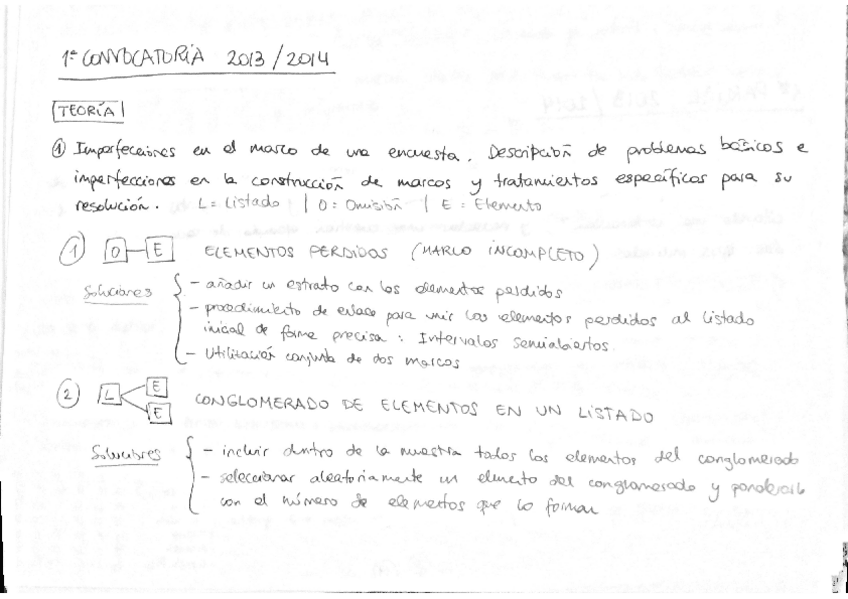 1ª CONVOCATORIA 2013/2014
TEORÍA
① Imperfecciones en el marco de una encuesta. Descripción de problemas básicos e
imperfecciones en la construcción de marcos y tratamientos específicos para su
resolución. L = Listado | O = Omisión | E = Elemento
① O E ELEMENTOS PERDIDOS (MARCO INCOMPLETO)
Soluciones - añadir un estrato con los elementos perdidos
- procedimiento de enlace para unir los elementos perdidos al listado
inicial de forma precisa: Intervalos semiabiertos.
- Utilización conjunta de dos marcos
② L E E CONGLOMERADO DE ELEMENTOS EN UN LISTADO
Soluciones - incluir dentro de la muestra todos los elementos del conglomerado
- seleccionar aleatoriamente un elemento del conglomerado y ponderarlo
con el número de elementos que lo forman